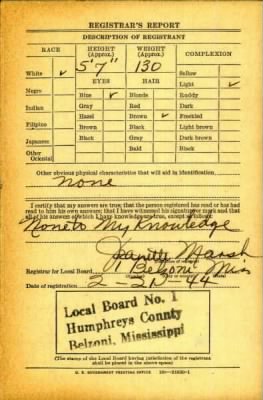 REGISTRAR'S REPORT
DESCRIPTION OF REGISTRANT
RACE HEIGHT (Approx.) WEIGHT (Approx.) COMPLEXION
5' 7" 130
White ✓ EYES HAIR Sallow
Light ✓
Negro Blue ✓ Blonde Ruddy
Indian Gray Red Dark
Filipino Hazel Brown ✓ Freckled
Japanese Brown Black Light brown
Other Oriental Black Gray Dark brown
Bald Black
Other obvious physical characteristics that will aid in identification
None
I certify that my answers are true; that the person registered has read or has had
read to him his own answers; that I have witnessed his signature or mark and that
all of his answers of which I have knowledge are true, except as follows:
None to My Knowledge
Jeanette Marsh
Registrar for Local Board Belzoni Miss
Date of registration 2-21-44
Local Board No. 1
Humphreys County
Belzoni, Mississippi
(The stamp of the Local Board having jurisdiction of the registrant
shall be placed in the above space)
U. S. GOVERNMENT PRINTING OFFICE